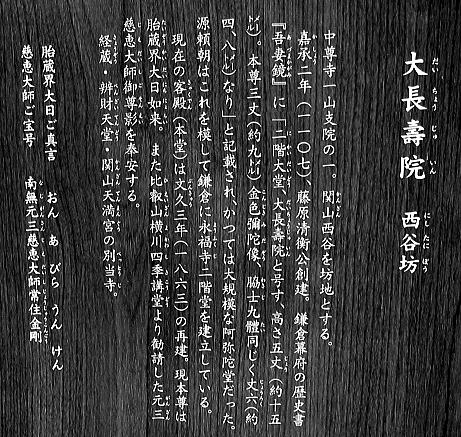 大長壽院 西谷坊
中尊寺一山支院の一。関山西谷を坊地とする。
嘉承二年(一一〇七)、藤原清衡公創建。鎌倉幕府の歴史書
『吾妻鏡』に「二階大堂、大長壽院と号す、高さ五丈(約十五
㍍)。本尊三丈(約九㍍)金色彌陀像、脇士九體同じく丈六(約
四、八㍍)なり」と記載され、かつては大規模な阿弥陀堂だった。
源頼朝はこれを模して鎌倉に永福寺二階堂を建立している。
現在の客殿(本堂)は文久三年(一八六三)の再建。現本尊は
胎蔵界大日如来。また比叡山横川四季講堂より勧請した元三
慈恵大師御尊影を奉安する。
経蔵・辨財天堂・関山天満宮の別当寺。
胎蔵界大日ご真言 おん あ びら うん けん
慈恵大師ご宝号 南無元三慈恵大師常住金剛